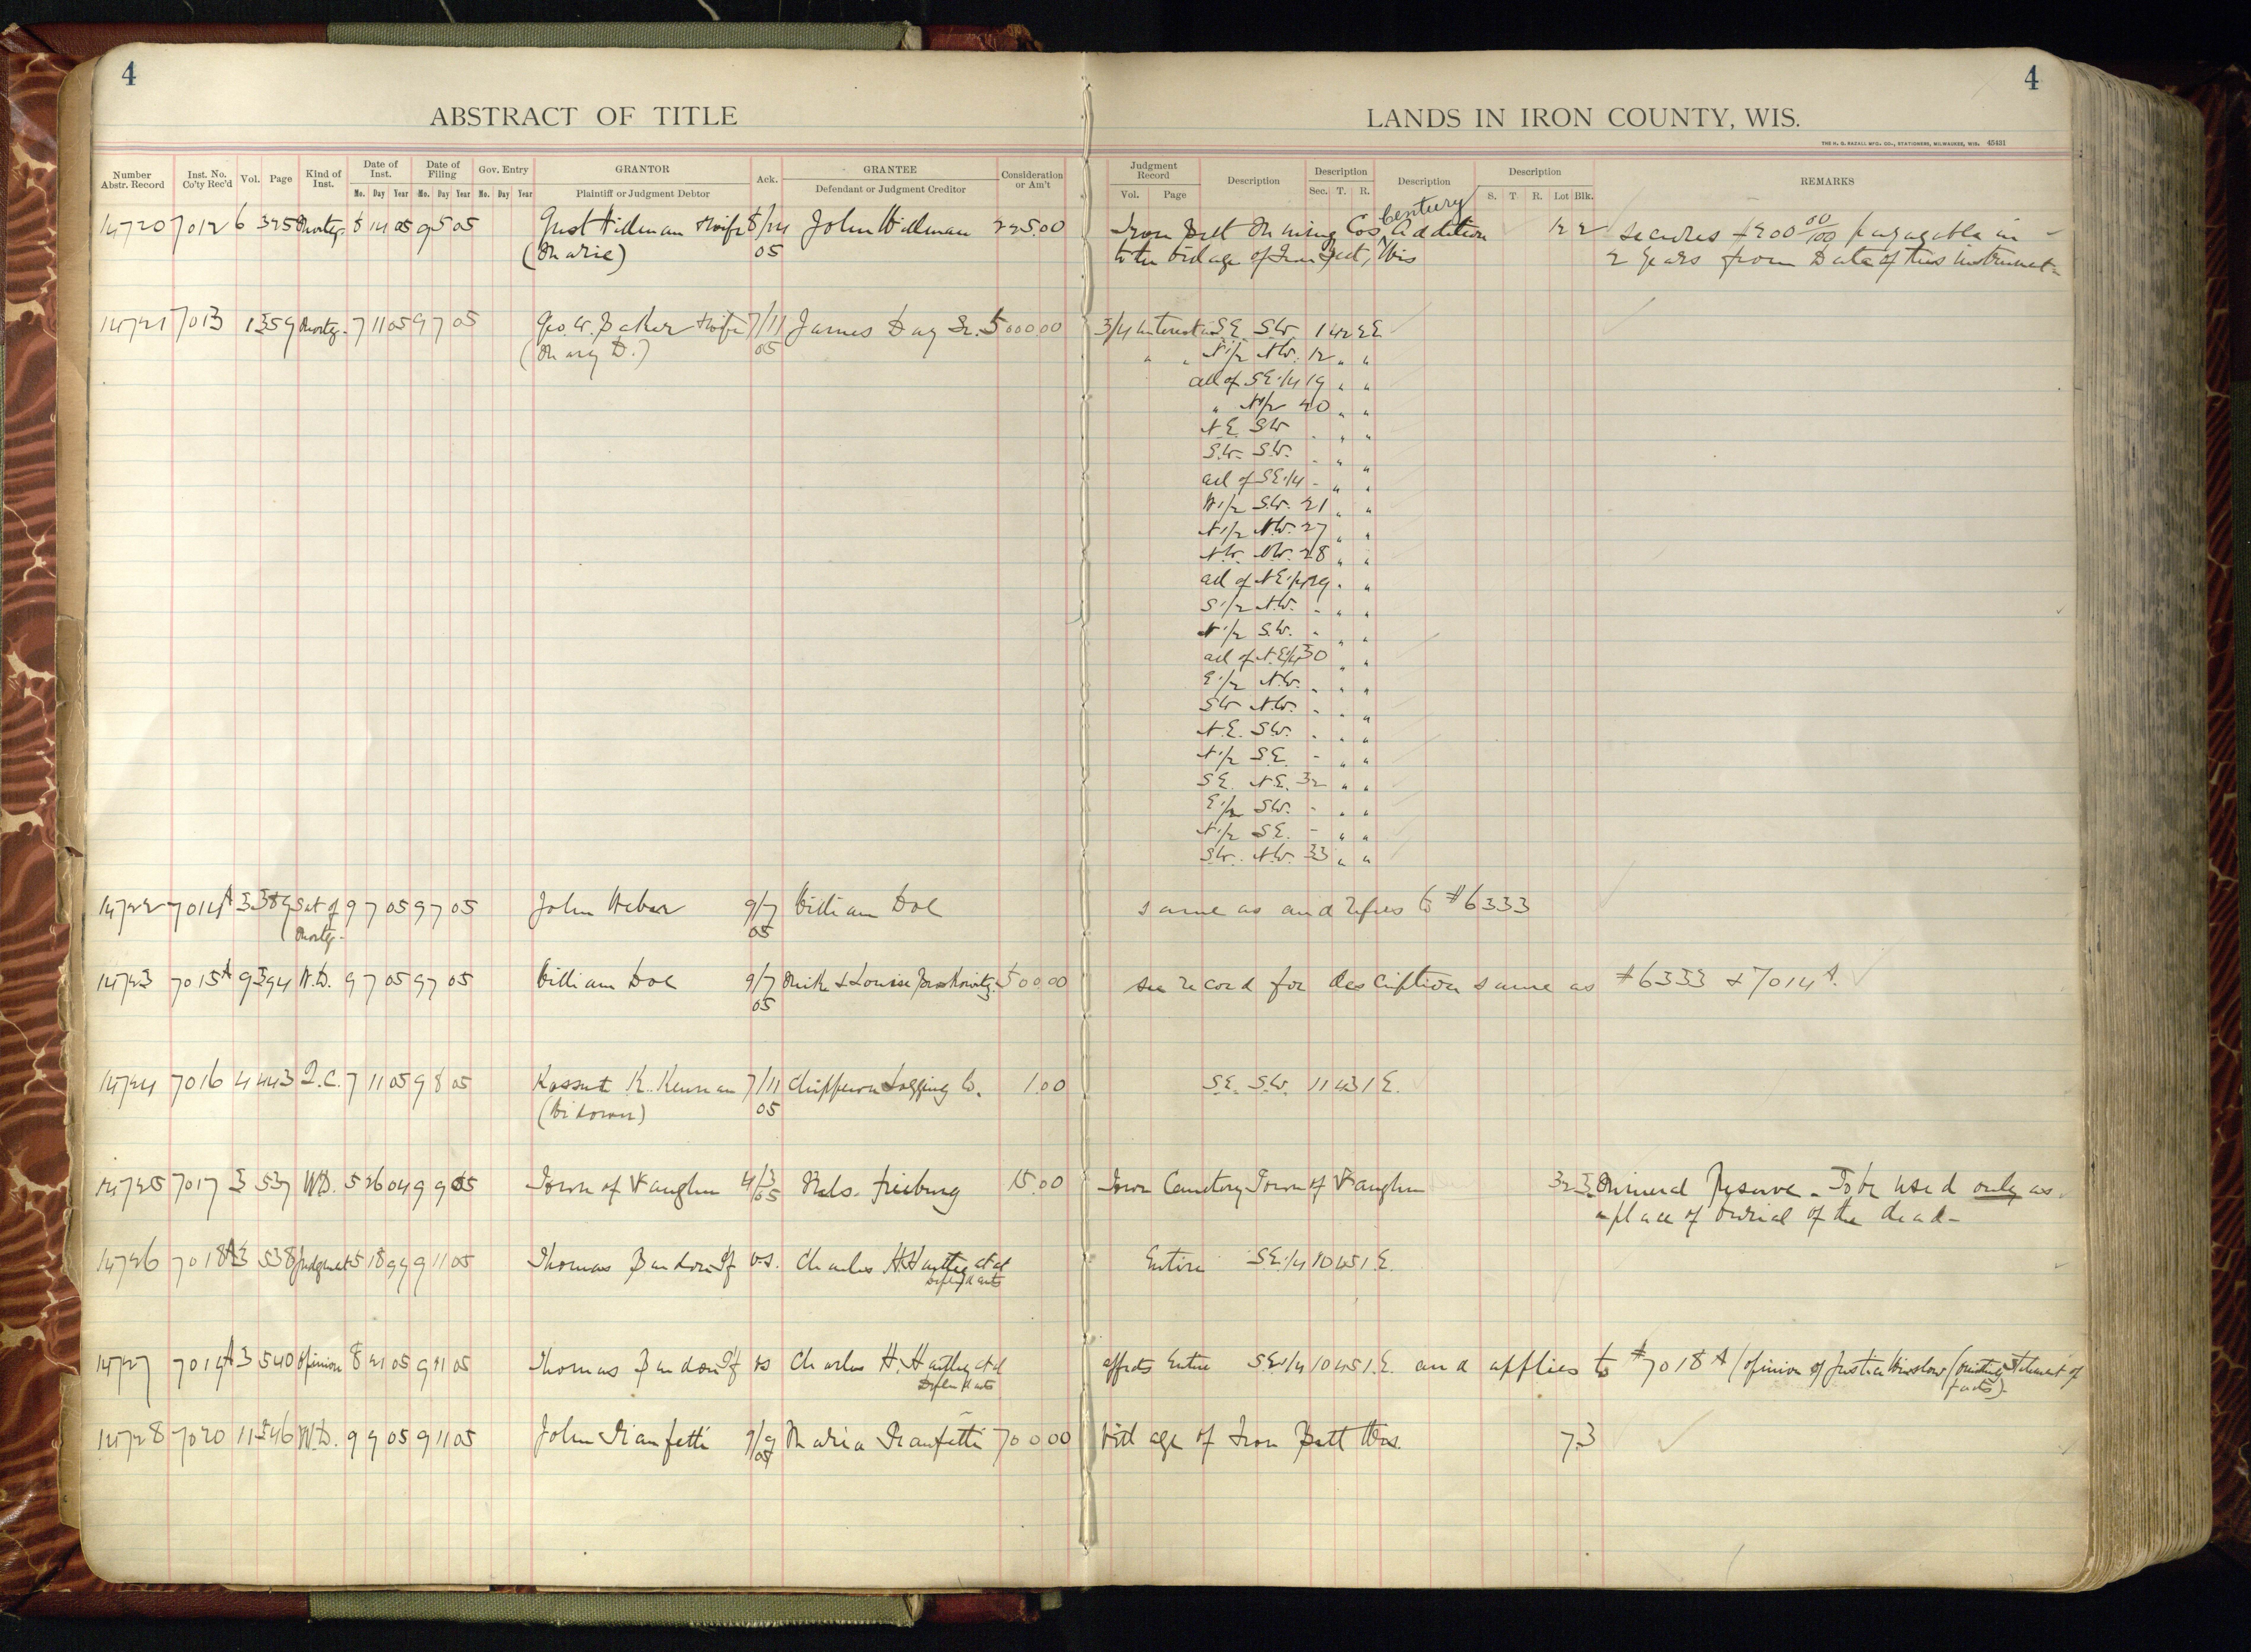 4
4
ABSTRACT OF TITLE
LANDS IN IRON COUNTY, WIS.
THE H. G. RAZALL MFG. CO., STATIONERS, MILWAUKEE, WIS. 45431
Number Abstr. Record Inst. No. Co'ty Rec'd Vol. Page Kind of Inst. Date of Inst. Date of Filing Gov. Entry GRANTOR Ack. GRANTEE Consideration or Am't Judgment Record Description Description Description Description REMARKS
Mo. Day Year Mo. Day Year Mo. Day Year Plaintiff or Judgment Debtor Defendant or Judgment Creditor Vol. Page Sec. T. R. S. T. R. Lot Blk.
Century
14720 7012 6 325 Mortg. 8 14 05 9 5 05 Gust Hillman & wife 8/14 John Hillman 225.00 Iron Belt Mining Cos Addition 12 2 secures $200 00/100 payable in
(Marie) 05 to the Village of Iron Belt, Wis 2 years from Date of this instrument
14721 7013 1 359 Mortg. 7 11 05 9 7 05 Geo. W. Baker & wife 7/11 James Day Sr. 5000 00 3/4 interest in S.E. S.W. 1 42 2 E.
(Mary D.) 05 " " N 1/2 N.W. 12 " "
all of S.E. 1/4 19 " "
" N 1/2 20 " "
N.E. S.W. - " "
S.W. S.W. - " "
all of S.E. 1/4 - " "
W 1/2 S.W. 21 " "
N 1/2 N.W. 27 " "
N.W. N.W. 28 " "
all of N.E. 1/4 29 " "
S 1/2 N.W. - " "
N 1/2 S.W. - " "
all of N.E. 1/4 30 " "
E 1/2 N.W. - " "
S.W. N.W. - " "
N.E. S.W. - " "
N 1/2 S.E. - " "
S.E. N.E. 32 " "
E 1/2 S.W. - " "
N 1/2 S.E. - " "
S.W. N.W. 33 " "
14722 7014 A 3 389 Sat of 9 7 05 9 7 05 John Weber 9/7 William Dol same as and refers to #6333
Mortg. 05
14723 7015 A 9 394 W.D. 9 7 05 9 7 05 William Dol 9/7 Mike & Louise 500.00 see record for description same as #6333 & 7014 A.
05
14724 7016 4 443 Q.C. 7 11 05 9 8 05 Kossut K. Kennan 7/11 Chippewa Logging Co. 1.00 S.E. S.W. 11 43 1 E.
(Widower) 05
14725 7017 3 537 W.D. 5 26 04 9 9 05 Town of Vaughn 4/3 Nels. Frieburg 15.00 Town Cemetery Town of Vaughn 32 3 Mineral Reserve - To be used only as
05 a place of burial of the dead -
14726 7018 A 3 538 Judgment 5 18 99 9 11 05 Thomas Bardon Plf vs. Charles H. Hartley et al Entire S.E. 1/4 10 45 1 E.
Defendants
14727 7019 A 3 540 Opinion 8 21 05 9 11 05 Thomas Bardon Plf vs Charles H. Hartley et al affects Entire S.E. 1/4 10 45 1 E. and applies to #7018 A (opinion of Justice Winslow (omitting statement of
Defendants facts).
14728 7020 11 346 W.D. 9 9 05 9 11 05 John Gianfetti 9/9 Maria Gianfetti 700 00 Village of Iron Belt Wis. 7 3
05